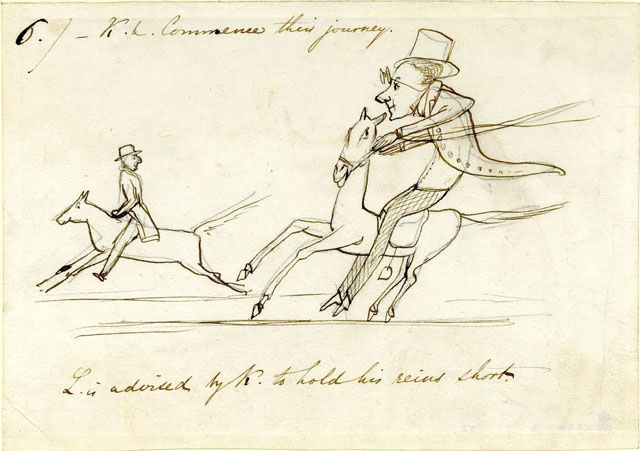 6.) - K. L. Commence their journey.
L. is advised by K. to hold his reins short.